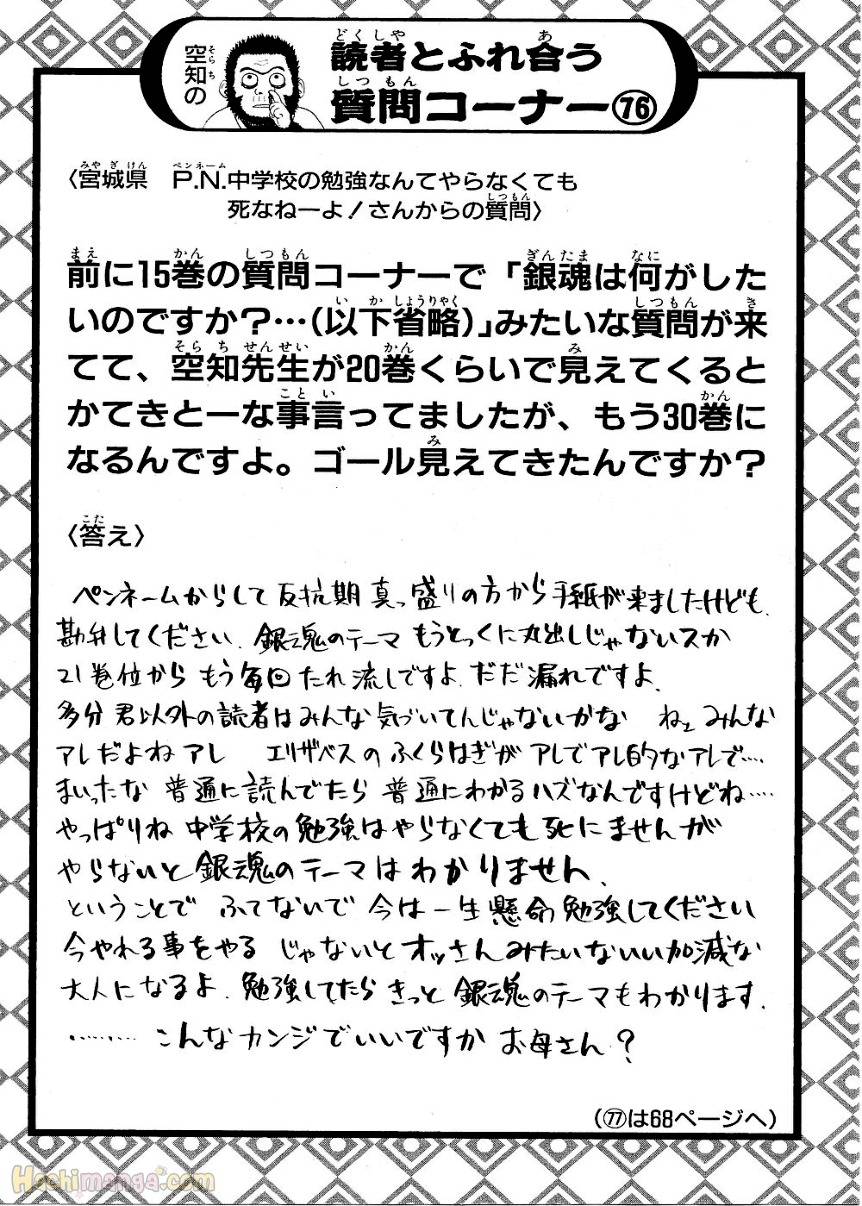 空知の
読者とふれ合う
質問コーナー㊆
〈宮城県　P.N.中学校の勉強なんてやらなくても
死なねーよ！さんからの質問〉
前に15巻の質問コーナーで「銀魂は何がした
いのですか？…（以下省略）」みたいな質問が来
てて、空知先生が20巻くらいで見えてくると
かてきとーな事言ってましたが、もう30巻に
なるんですよ。ゴール見えてきたんですか？
〈答え〉
ペンネームからして反抗期真っ盛りの方から手紙が来ましたけども、
勘弁してください。銀魂のテーマもうとっくに丸出しじゃないスか
21巻位からもう毎回たれ流しですよ。だだ漏れですよ。
多分君以外の読者はみんな気づいてんじゃないかな　ねェみんな
アレだよねアレ　エリザベスのふくらはぎがアレでアレ的なアレで‥‥
まいったな　普通に読んでたら普通にわかるハズなんですけどね‥‥
やっぱりね　中学校の勉強はやらなくても死にませんが
やらないと銀魂のテーマはわかりません。
ということで　ふてないで今は一生懸命勉強してください
今やれる事をやる　じゃないとオッさんみたいないい加減な
大人になるよ。勉強してたらきっと銀魂のテーマもわかります。
………こんなカンジでいいですか　お母さん？
（77は68ページへ）
Hachimanga.com